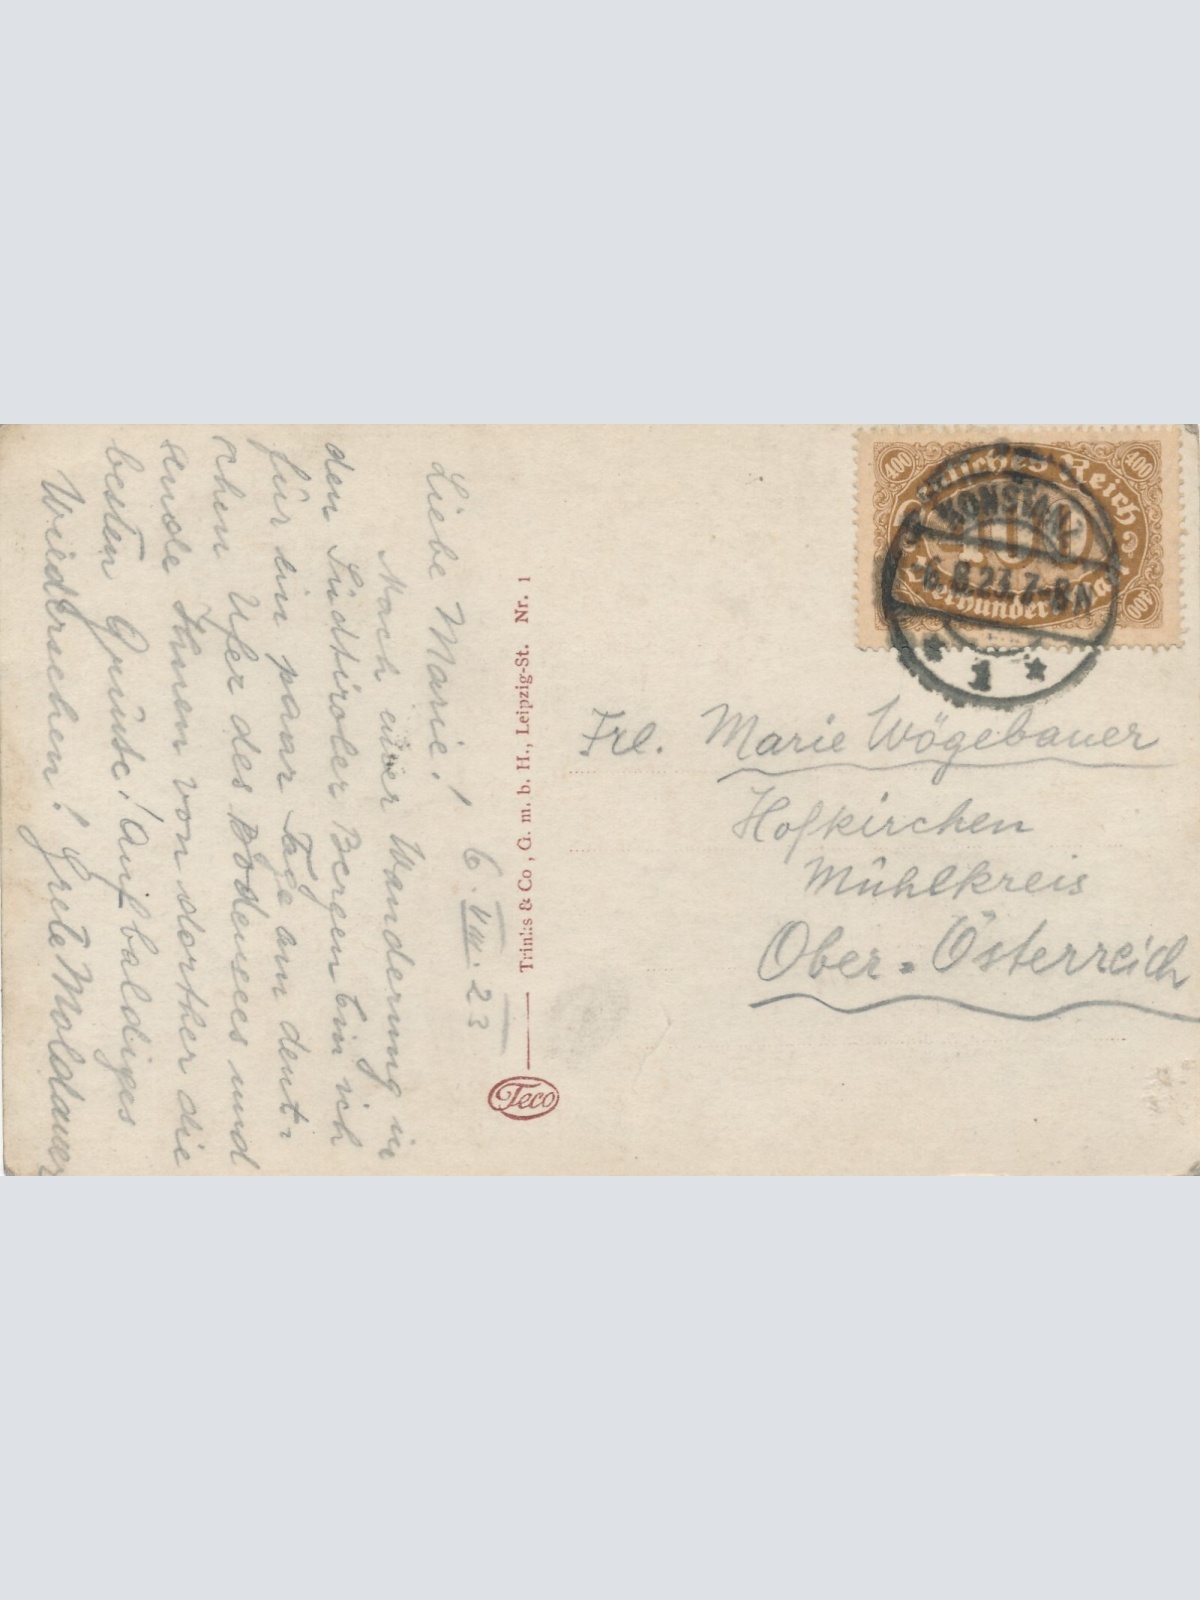 6. VIII. 23
Liebe Marie!
Nach einer Wanderung in
den Südtiroler Bergen bin ich
für ein paar Tage am deut-
schen Ufer des Bodensees und
sende Ihnen von dorther die
besten Grüße! Auf baldiges
Wiedersehen! Grete Moldauer
Trinks & Co., G. m. b. H., Leipzig-St. Nr. 1
Teco
Deutsches Reich
400 400
400
400
Vierhundert Mark
KONSTANZ
-6.8.23.7-8N
* 1 *
Frl. Marie Wögebauer
Hofkirchen
Mühlkreis
Ober-Österreich